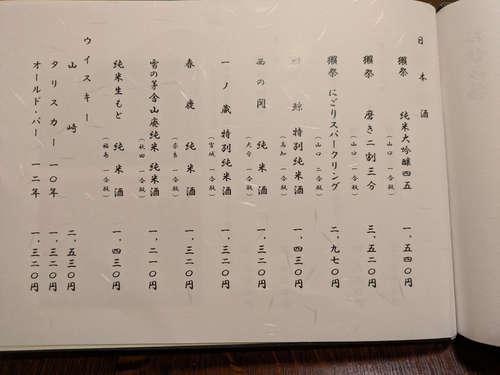 日本酒
獺祭 純米大吟醸四五 一、五四〇円
(山口 一合瓶)
獺祭 磨き二割三分 三、五二〇円
(山口 一合瓶)
獺祭 にごりスパークリング 二、九七〇円
(山口 二合瓶)
鯨 特別純米酒 一、四三〇円
(高知 一合瓶)
西の関 純米酒 一、三二〇円
(大分 一合瓶)
一ノ蔵 特別純米酒 一、三二〇円
(宮城 一合瓶)
春鹿 純米酒 一、三二〇円
(奈良 一合瓶)
雪の茅舎山廃純米 純米酒 一、二一〇円
(秋田 一合瓶)
純米生もと 純米酒 一、四三〇円
(福島 一合瓶)
ウイスキー
山崎 二、五三〇円
タリスカー 一〇年 一、三二〇円
オールド・パー 一二年 一、三二〇円